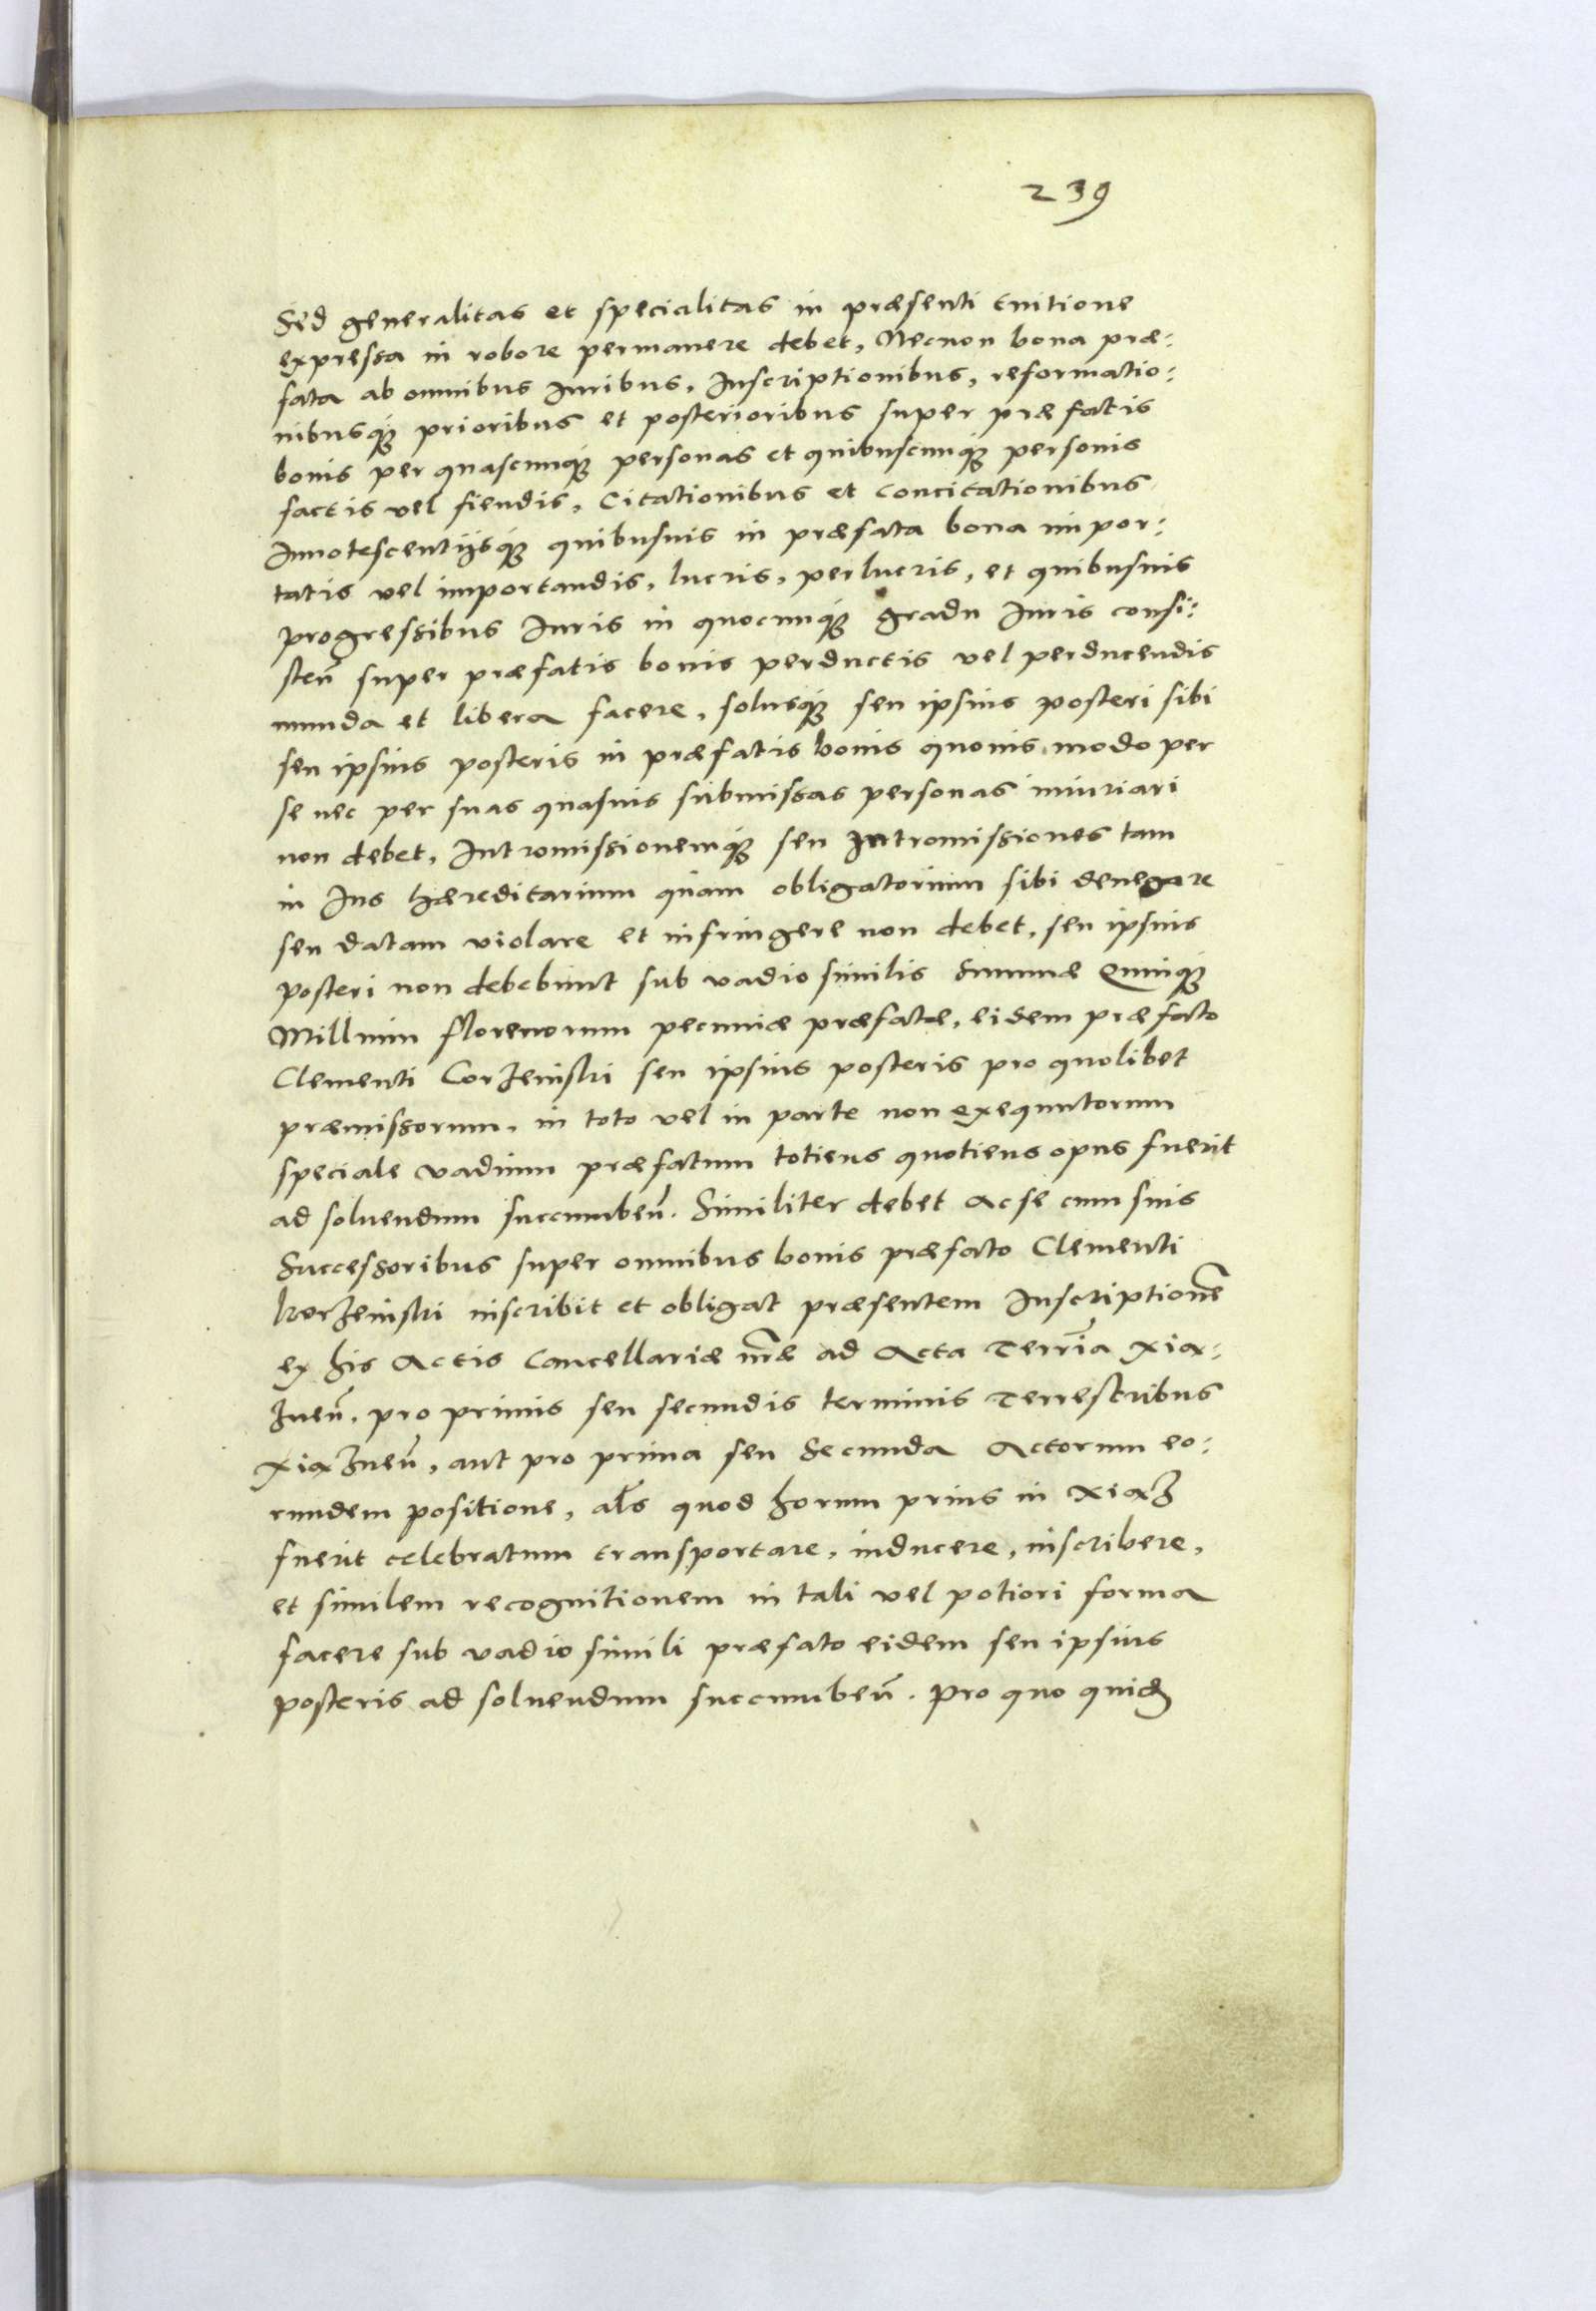 239
Sed generalitas et specialitas in præsenti Euitione
expressa in robore permanere debet, Necnon bona præ:
fata ab omnibus Iuribus, Inscriptionibus, reformatio:
nibusq₃ prioribus et posterioribus super præfatis
bonis per quascunq₃ personas et quibuscunq₃ personis
factis vel fiendis, Citationibus et Concitationibus
Innotescentijsq₃ quibusuis in præfata bona impor:
tatis vel importandis, lucris, perlucris, et quibusuis
progressibus Iuris in quocunq₃ gradu Iuris consi:
steñ super præfatis bonis perductis vel perducendis
munda et libera facere, solusq₃ seu ipsius posteri sibi
seu ipsius posteris in præfatis bonis quouis modo per
se nec per suas quasuis submissas personas iniuriari
non debet, Intromissionemq₃ seu Intromissiones tam
in Ius hæreditarium quam obligatorium sibi denegare
seu datam violare et infringere non debet, seu ipsius
posteri non debebunt sub vadio similis Summæ Quinq₃
Millium florenorum pecuniæ præfatæ, eidem præfato
Clementi Corzeniski seu ipsius posteris pro quolibet
præmissorum, in toto vel in parte non exequutorum
speciale vadium præfatum totiens quotiens opus fuerit
ad soluendum succumbeñ. Similiter debet ac se cum suis
Successoribus super omnibus bonis præfato Clementi
korzeniski inscribit et obligat præsentem Inscriptionẽ
ex his Actis Cancellariæ nr̃æ ad Acta Terrĩa Xia:
zneñ, pro primis seu secundis terminis Terrestribus
Xiazneñ, aut pro prima seu Secunda Actorum eo:
rundem positione, al̃s quod horum prius in Xiaz
fuerit celebratum transportare, inducere, inscribere,
et similem recognitionem in tali vel potiori forma
facere sub vadio simili præfato eidem seu ipsius
posteris ad soluendum succumbeñ. Pro quo quid₃